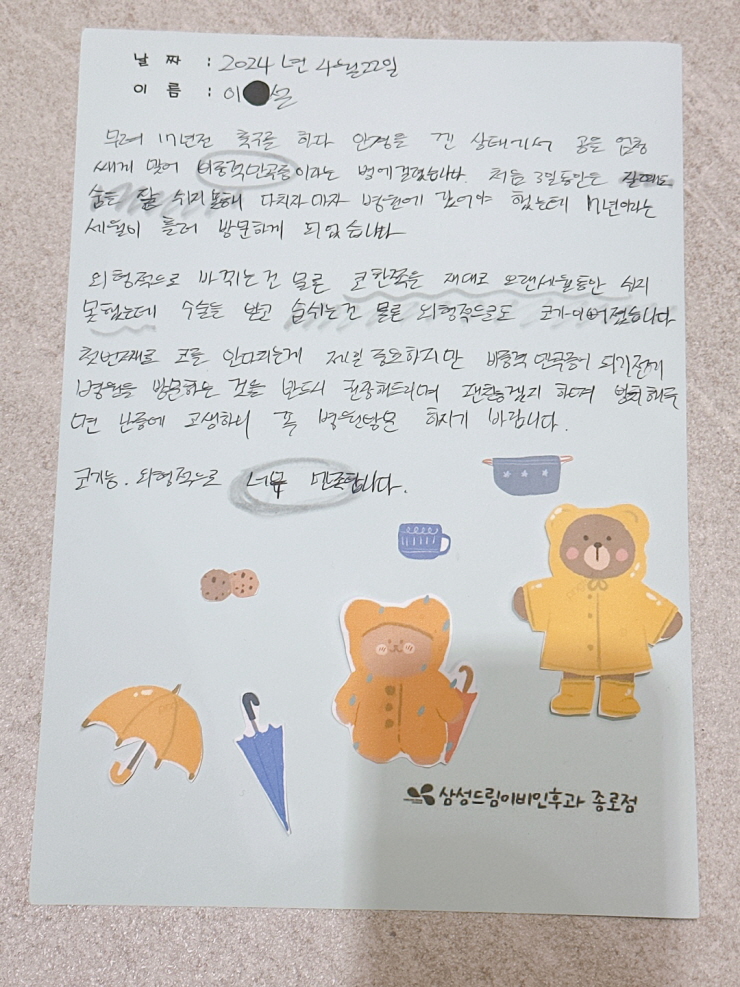 날 짜 : 2024년 4월 22일
이 름 : 이●은
무려 17년전 축구를 하다 안경을 낀 상태에서 공을 엄청
쎄게 맞어 비중격만곡증이라는 병에 걸렸습니다. 처음 3일동안은 잘때도
숨을 잘 쉬지 못해 다치자마자 병원에 갔어야 했는데 17년이라는
세월이 흘러 방문하게 되었습니다
외형적으로 바뀌는건 물론 코 한쪽을 제대로 오랜세월동안 쉬지
못했는데 수술을 받고 숨쉬는건 물론 외형적으로도 코가 이뻐졌습니다
첫번째로 코를 안다치는게 제일 중요하지만 비중격 만곡증이 되기전에
병원을 방문하는 것을 반드시 권중해드리며 괜찮겠지 하며 방치해두
면 나중에 고생하니 꼭 병원방문 하시기 바랍니다.
코기능. 외형적으로 너무 만족합니다.
삼성드림이비인후과 종로점